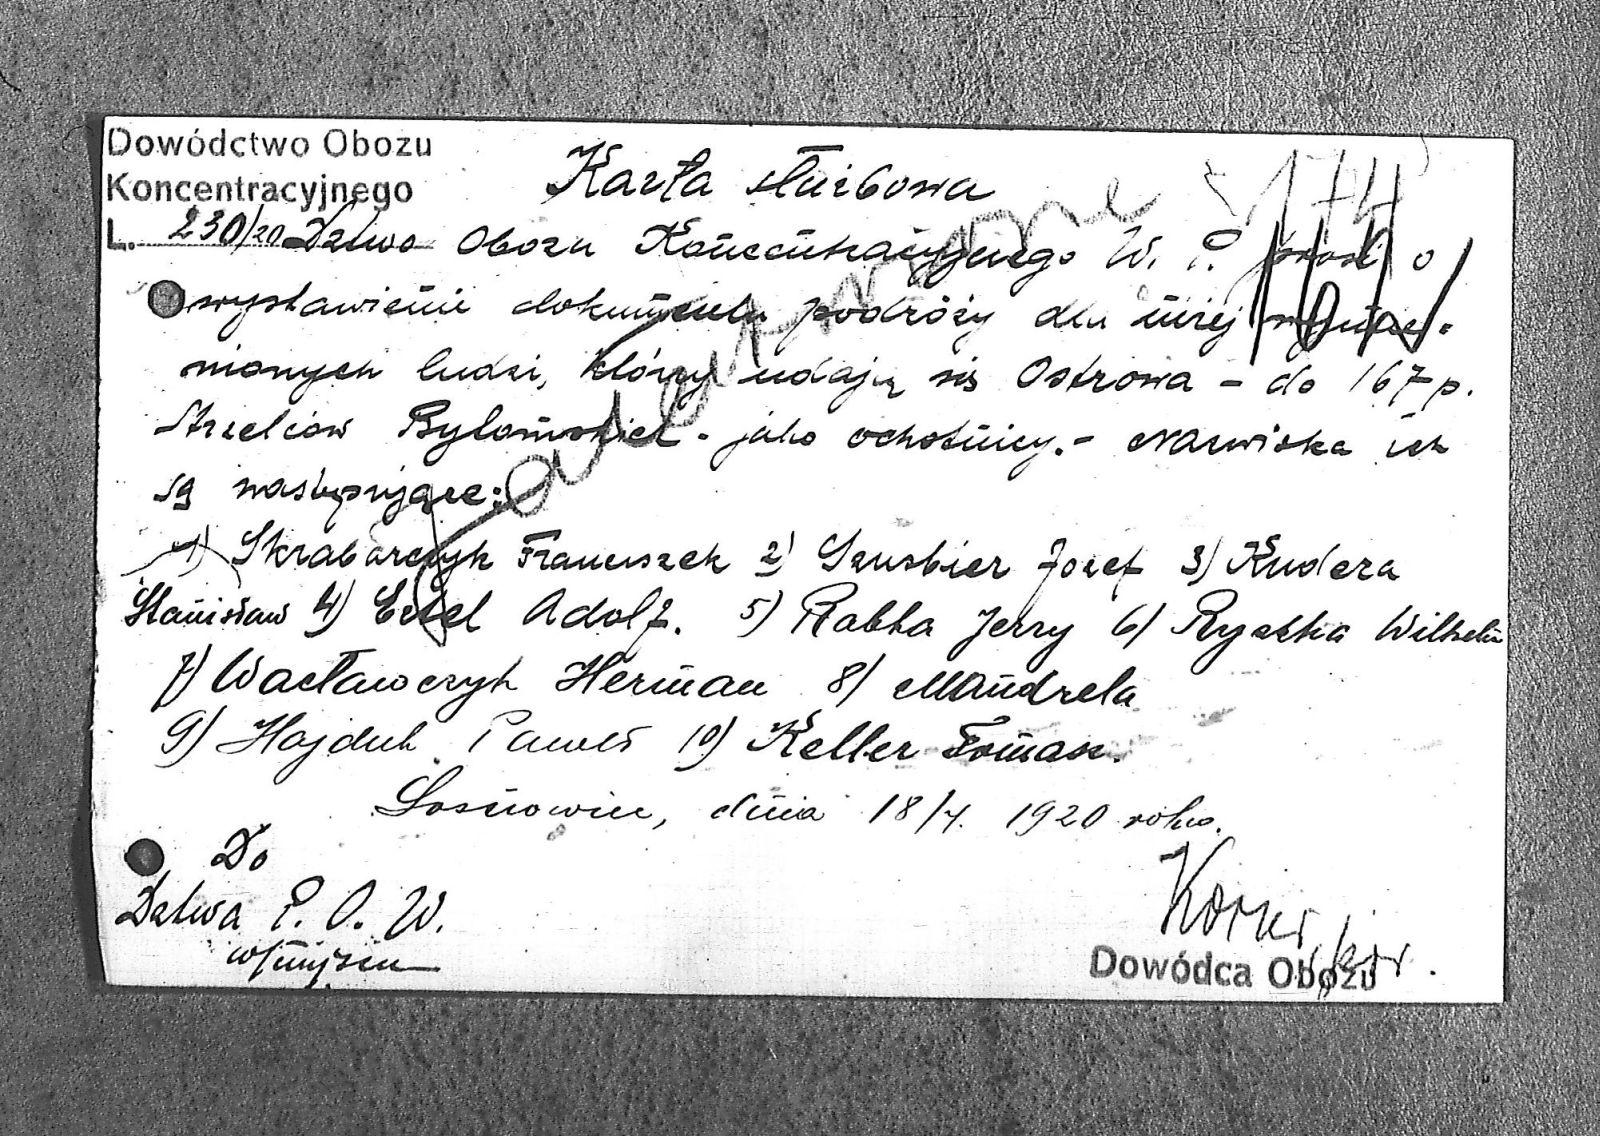 Dowództwo Obozu
Koncentracyjnego
Karta służbowa
174
L. 230/20 Dztwo Obozu Koncentracyjnego W. P. prosi o
wystawienie dokumentu podróży dla niżej wymie-
nionych ludzi, którzy udają się Ostrowa - do 167 p.
Strzelców Bytomskich - jako ochotnicy. - Nazwiska ich
są następujące:
Załatwione
1) Skrabarczyk Franciszek 2) Szusbier Józef 3) Kudera
Stanisław 4) Ertel Adolf. 5) Rabka Jerzy 6) Ryszka Wilhelm
7) Wacławczyk Herman 8) Mandrela
9) Hajduk Paweł 10) Keller Tomasz.
Sosnowiec, dnia 18/4. 1920 roku.
Do
Dztwa P. O. W.
w miejscu
Dowódca Obozu